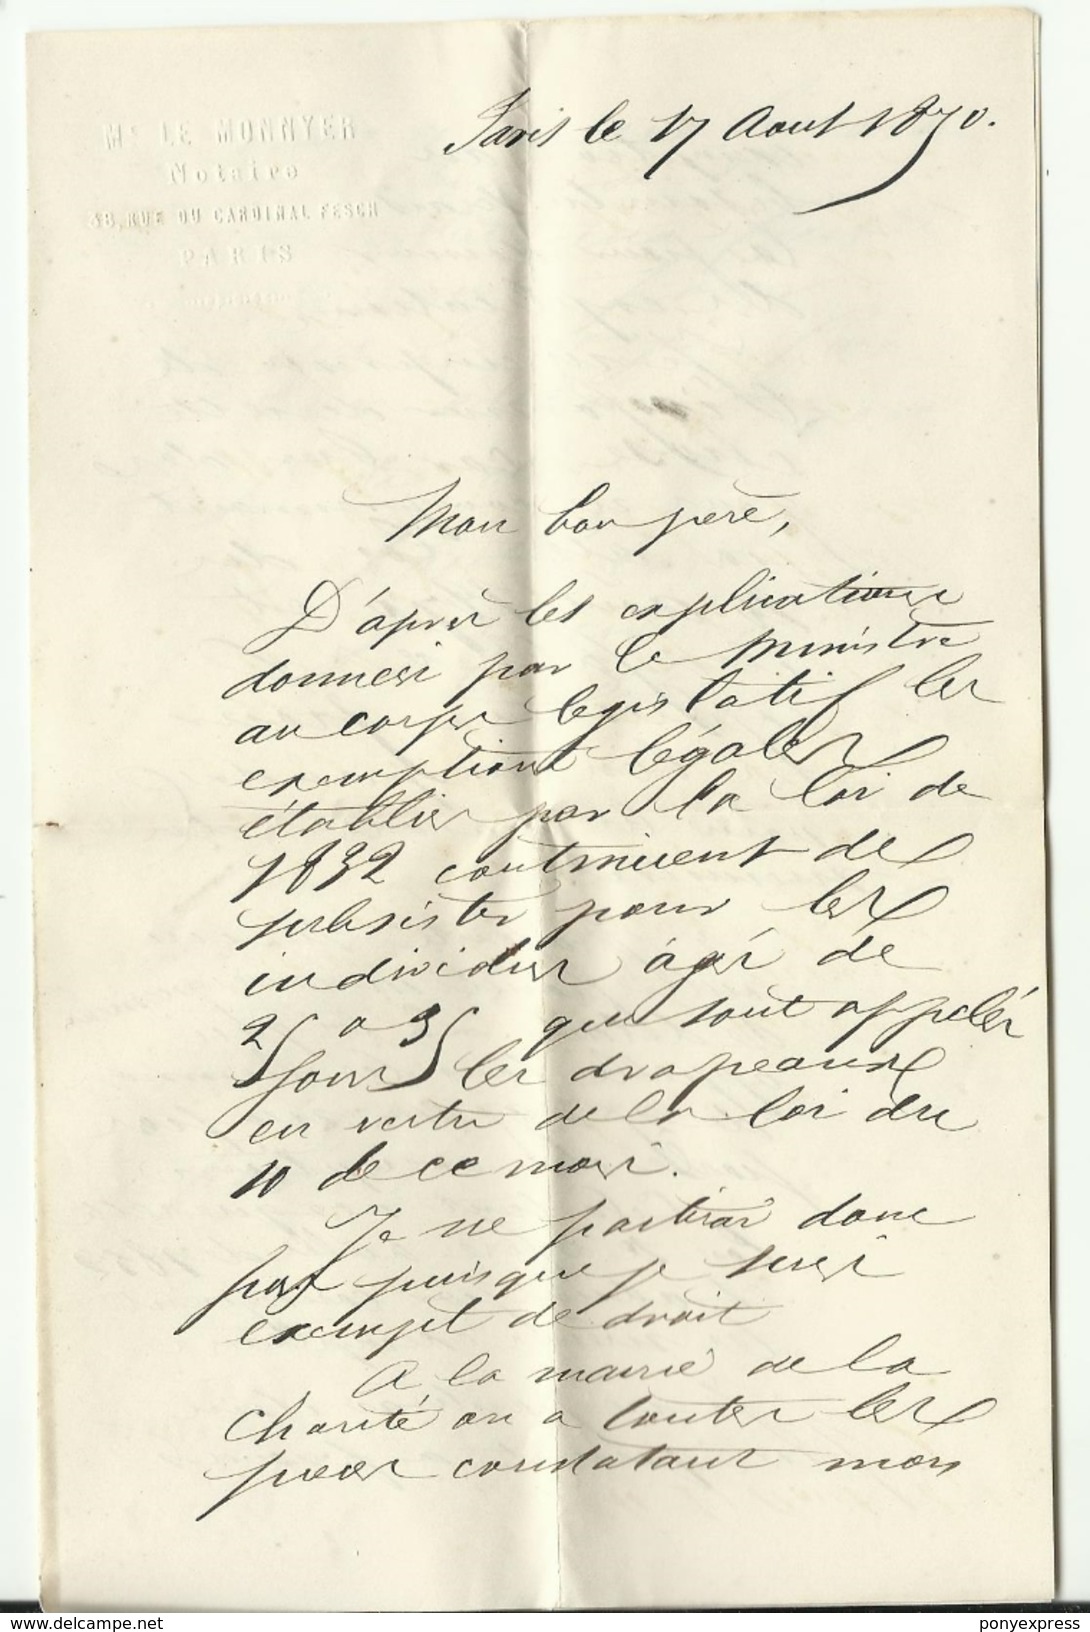 Me LE MONNYER
Notaire
38, RUE DU CARDINAL FESCH
PARIS
Paris le 17 Aout 1870.
Mon bon père,
D'après les explications
données par le Ministre
au corps législatif les
exemptions légales
établies par la loi de
1832 continuent de
subsister pour les
individus âgés de
25 a 35 qui sont appelés
sous les drapeaux
en vertu de la loi du
10 de ce mois.
Je ne partirai donc
pas puisque je suis
exempt de droit
A la mairie de la
Charité on a toutes les
pièces constatant mon
delcampe.net
ponyexpress